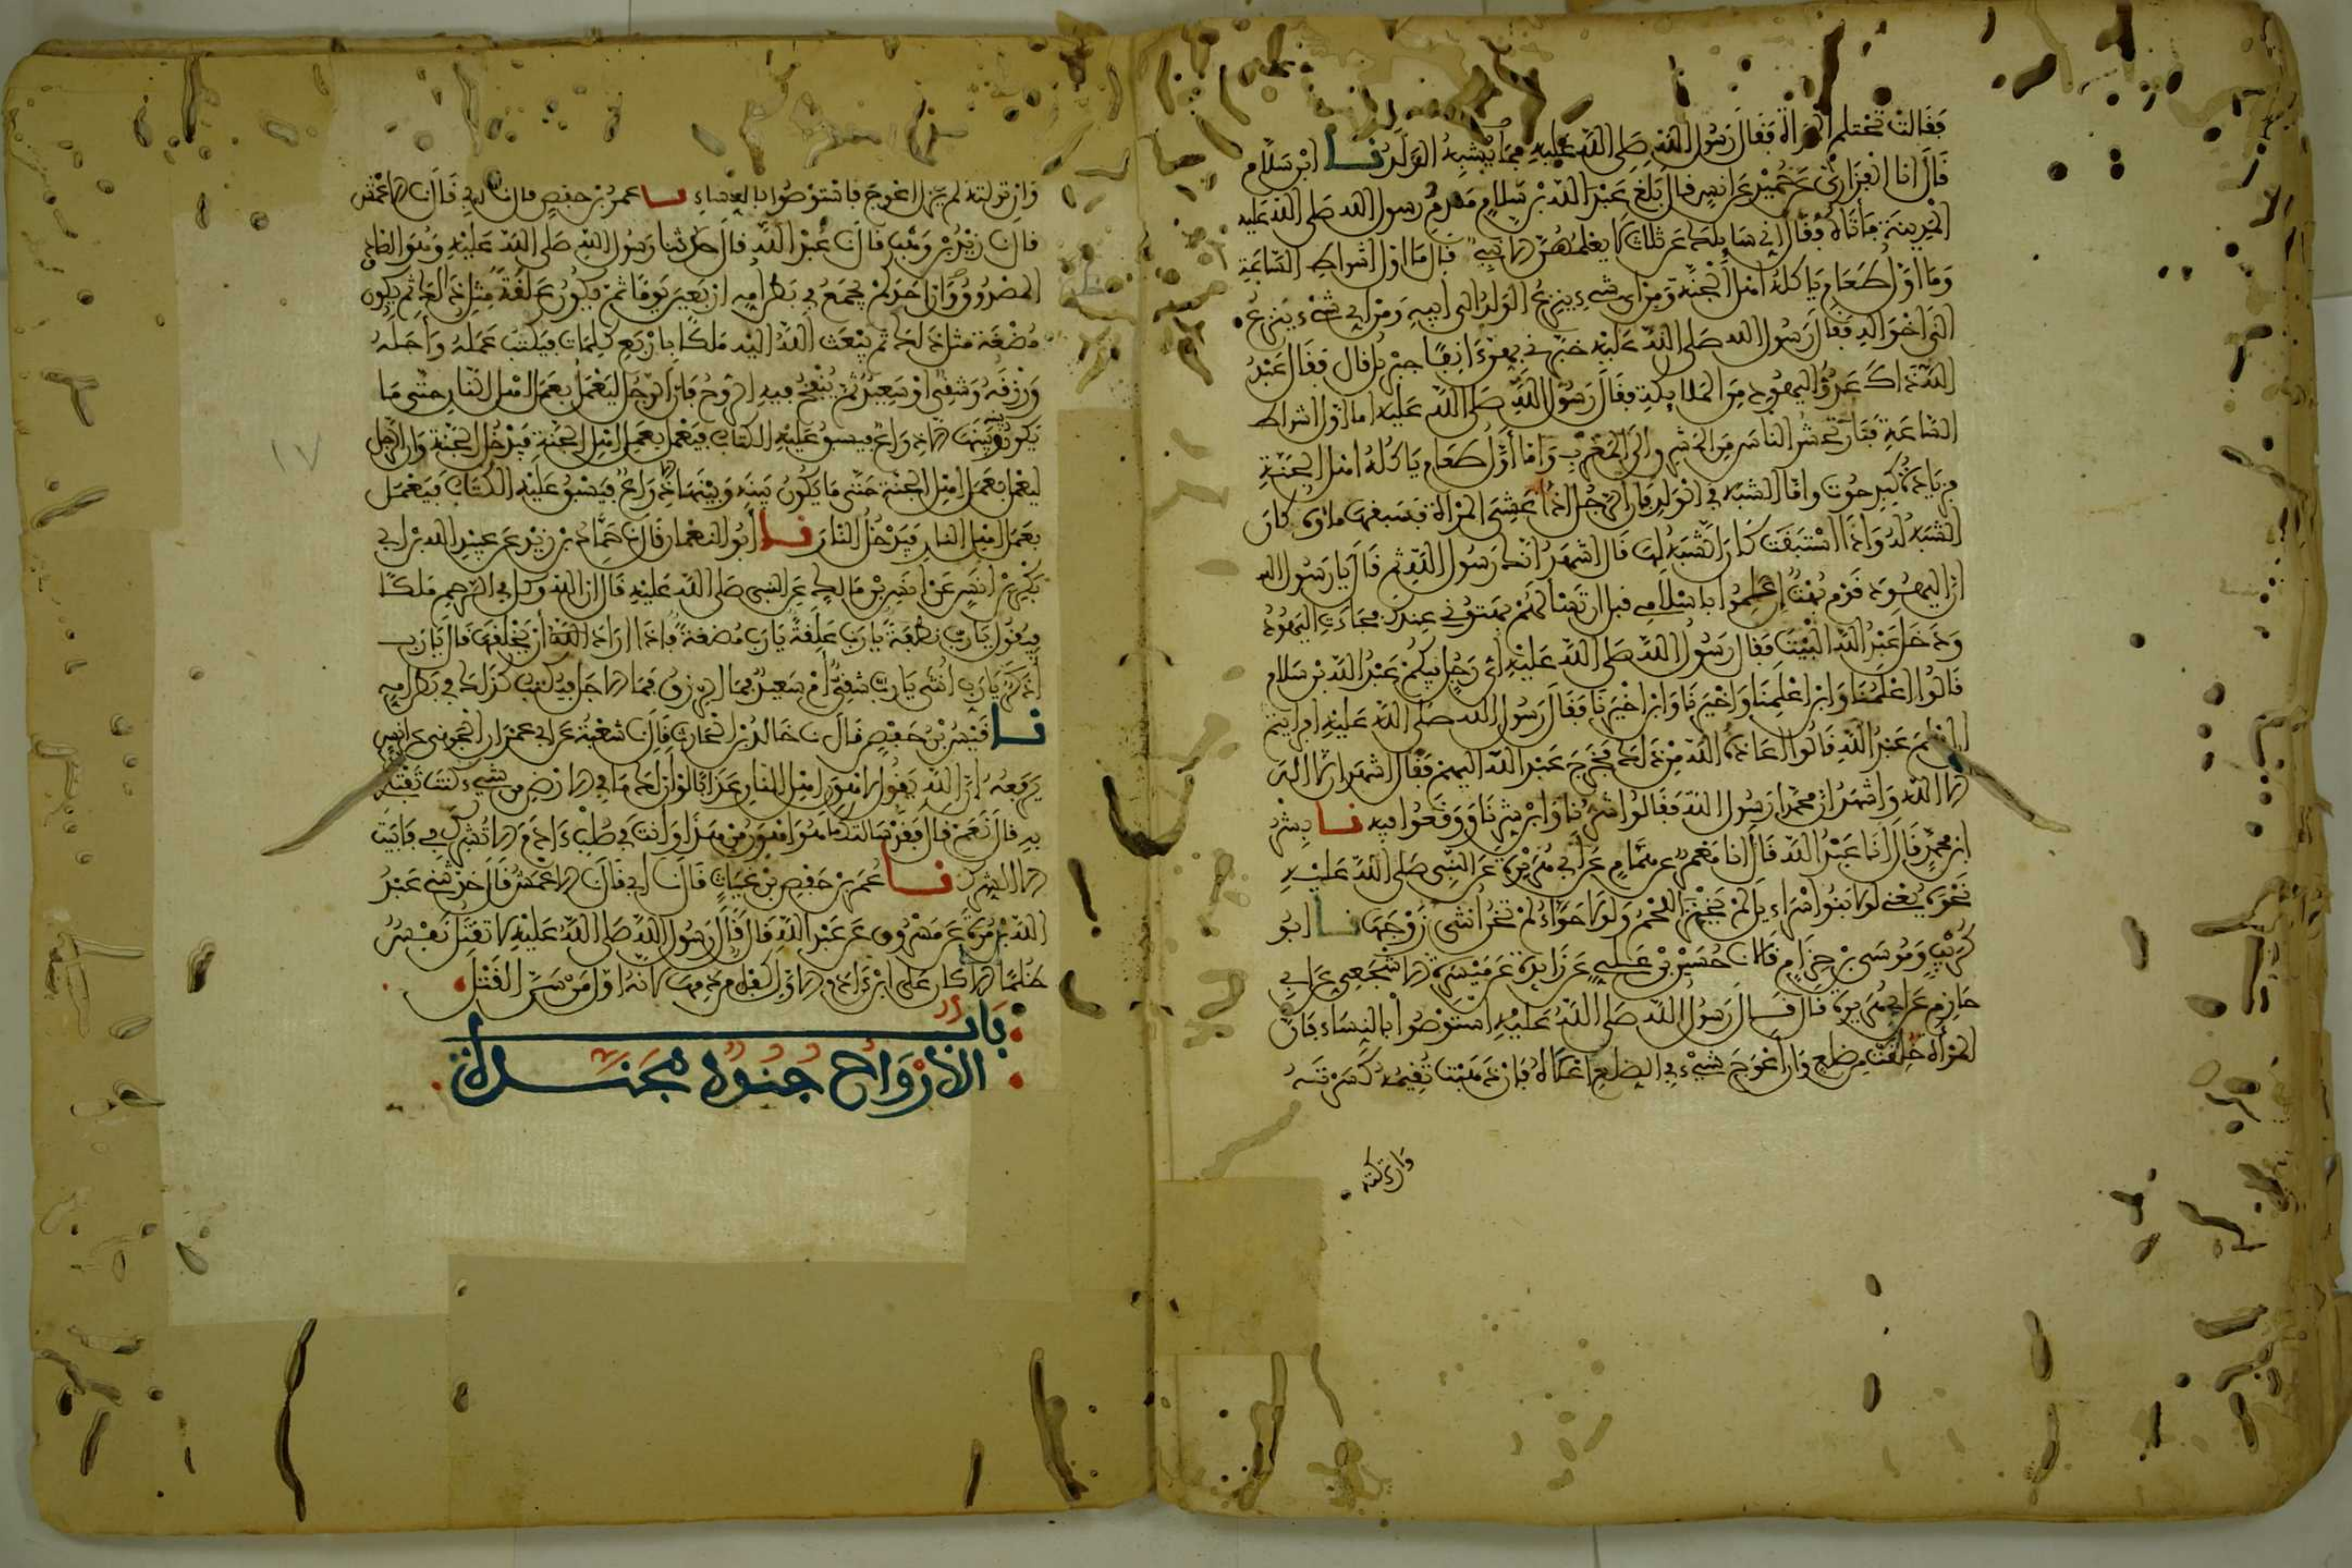 فقالت تحتلم المرأة فقال رسول الله صلى الله عليه فبما يشبه الولد نا ابن سلام
قال انا الفزاري عن حميد عن انس قال بلغ عبد الله بن سلام مقدم رسول الله صلى الله عليه
المدينة فأتاه فقال إني سايلك عن ثلاث لا يعلمهن الا نبي قال ما اول اشراط الساعة
وما أول طعام ياكله اهل الجنة ومن اي شيء ينزع الولد الى ابيه ومن اي شيء ينزع
الى اخواله فقال رسول الله صلى الله عليه خبرني بهن ءانفا جبريل قال فقال عبد
الله ذاك عدو اليهود من الملايكة فقال رسول الله صلى الله عليه اما اول اشراط
الساعة فنار تحشر الناس من المشرق إلى المغرب واما أول طعام ياكله اهل الجنة
فزيادة كبد حوت واما الشبه في الولد فان الرجل اذا غشي المرأة فسبقها ماؤه كان
الشبه له واذا استبقت كان الشبه لها قال اشهد انك رسول الله ثم قال يا رسول الله
ان اليهود قوم بهت إن علموا باسلامي قبل ان تسألهم بهتوني عندك فجاءت اليهود
ودخل عبد الله البيت فقال رسول الله صلى الله عليه اي رجل فيكم عبد الله بن سلام
قالوا اعلمنا وابن اعلمنا واخيرنا وابن اخيرنا فقال رسول الله صلى الله عليه افرايتم
ان اسلم عبد الله قالوا اعاذه الله من ذلك فخرج عبد الله اليهم فقال اشهد ان لا اله
الا الله واشهد ان محمدا رسول الله فقالوا شرنا وابن شرنا ووقعوا فيه نا بشر
ابن محمد قال انا عبد الله قال انا معمر عن همام عن ابي هريرة عن النبي صلى الله عليه
نحوه يعني لولا بنوا اسراءيل لم يخنز اللحم ولولا حواء لم تخن انثى زوجها نا ابو
كريب وموسى بن حزام قالا نا حسين بن علي عن زايدة عن ميسرة الاشجعي عن ابي
حازم عن ابي هريرة قال قال رسول الله صلى الله عليه استوصوا بالنساء فان
المرأة خلقت من ضلع وان أعوج شيء في الضلع اعلاه فان ذهبت تقيمه كسرته
وان تركته
وان تركته لم يزل اعوج فاستوصوا بالنساء نا عمر بن حفص قال نا ابي قال نا الاعمش
قال نا زيد بن وهب قال نا عبد الله قال حدثنا رسول الله صلى الله عليه وهو الصادق
المصدوق وان احدكم يجمع في بطن امه اربعين يوما ثم يكون علقة مثل ذلك ثم يكون
مضغة مثل ذلك ثم يبعث الله اليه ملكا باربع كلمات فيكتب عمله واجله
ورزقه وشقي او سعيد ثم ينفخ فيه الروح فان الرجل ليعمل بعمل اهل النار حتى ما
يكون بينه وبينها الا ذراع فيسبق عليه الكتاب فيعمل بعمل اهل الجنة فيدخل الجنة وان الرجل
ليعمل بعمل اهل الجنة حتى ما يكون بينه وبينها الا ذراع فيسبق عليه الكتاب فيعمل
بعمل اهل النار فيدخل النار نا ابو النعمان قال نا حماد بن زيد عن عبيد الله بن ابي
بكر بن انس عن انس بن مالك عن النبي صلى الله عليه قال ان الله وكل في الرحم ملكا
فيقول يا رب نطفة يا رب علقة يا رب مضغة فاذا اراد الله أن يخلقها قال يا رب
اذكر يا رب انثى يا رب شقي أم سعيد فما الرزق فما الاجل فيكتب كذلك في بطن امه
نا قيس بن حفص قال نا خالد بن الحارث قال نا شعبة عن ابي عمران الجوني عن انس
يرفعه ان الله يقول لاهون اهل النار عذابا لو ان لك ما في الارض من شيء كنت تفتدي
به قال نعم قال فقد سالتك ما هو اهون من هذا وانت في صلب ءادم الا تشرك بي فابيت
الا الشرك نا عمر بن حفص بن غياث قال نا ابي قال نا الاعمش قال حدثني عبد
الله بن مرة عن مسروق عن عبد الله قال قال رسول الله صلى الله عليه لا تقتل نفس
ظلما الا كان على ابن ءادم الاول كفل من دمها لانه اول من سن القتل
باب
الارواح جنود مجندة
١٧